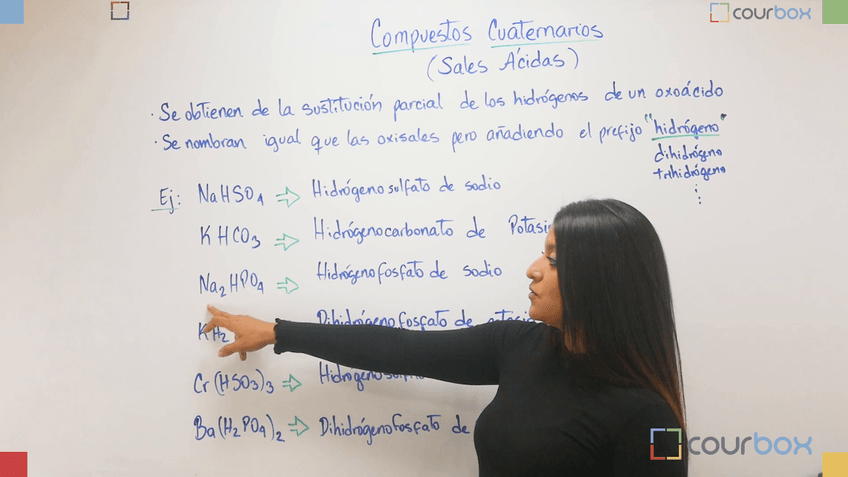 courbox
Compuestos Cuaternarios
(Sales Ácidas)
· Se obtienen de la sustitución parcial de los hidrógenos de un oxoácido
· Se nombran igual que las oxisales pero añadiendo el prefijo "hidrógeno"
dihidrógeno
trihidrógeno
⋮
Ej: NaHSO4 ⇒ Hidrógenosulfato de sodio
KHCO3 ⇒ Hidrógenocarbonato de
Na2HPO4 ⇒ Hidrógenofosfato de sodio
KH2 Dihidrógenofosfato de
Cr(HSO3)3 ⇒
Ba(H2PO4)2 ⇒ Dihidrógenofosfato de
courbox